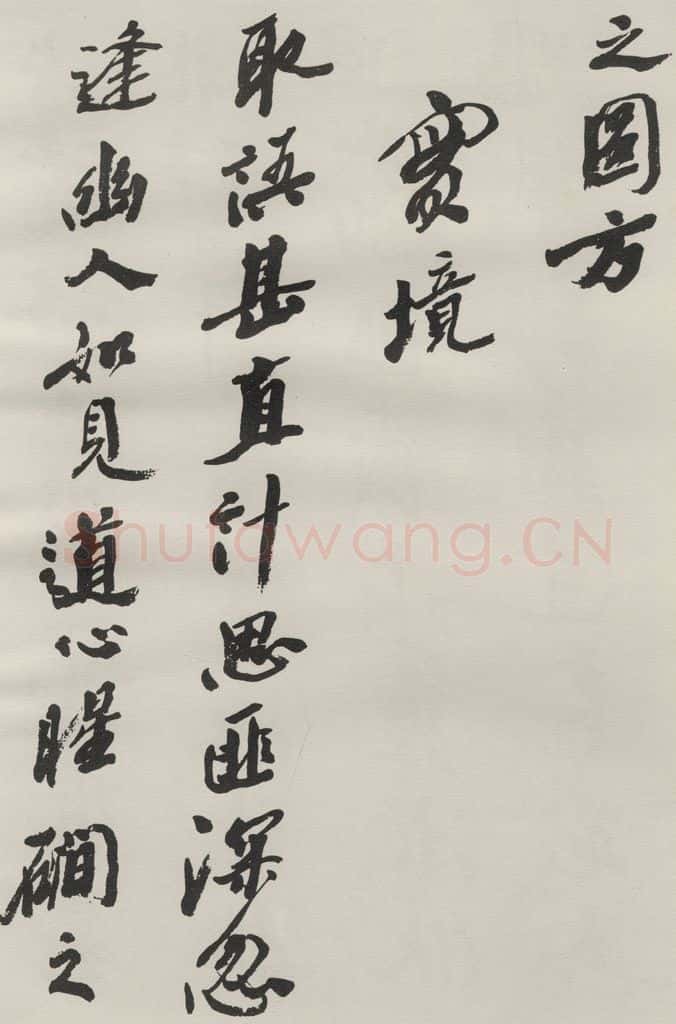 之圓方
實境
取語甚直計思匪深忽
逢幽人如見道心暒磵之
Shufawang.CN